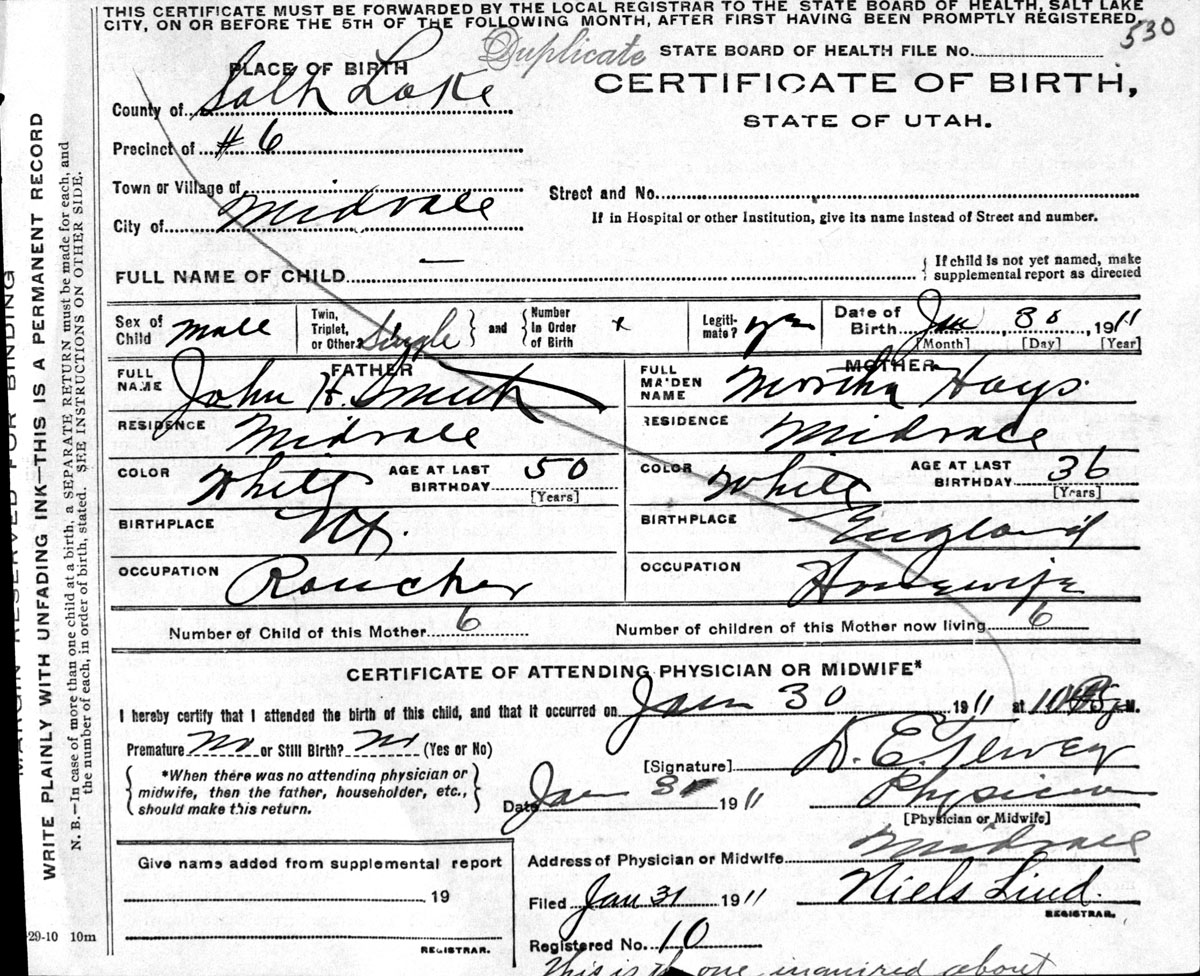 THIS CERTIFICATE MUST BE FORWARDED BY THE LOCAL REGISTRAR TO THE STATE BOARD OF HEALTH, SALT LAKE
CITY, ON OR BEFORE THE 5TH OF THE FOLLOWING MONTH, AFTER FIRST HAVING BEEN PROMPTLY REGISTERED.
530
Duplicate STATE BOARD OF HEALTH FILE No.
PLACE OF BIRTH
CERTIFICATE OF BIRTH,
County of Salt Lake
STATE OF UTAH.
Precinct of #6
Town or Village of
Street and No.
City of Midvale
If in Hospital or other Institution, give its name instead of Street and number.
FULL NAME OF CHILD —
If child is not yet named, make
supplemental report as directed
Sex of Child male
Twin, Triplet, or Other? Single and Number In Order of Birth x
Legiti- mate? yes
Date of Birth Jan 30, 1911
[Month] [Day] [Year]
FATHER
FULL NAME John H. Smith
RESIDENCE Midvale
COLOR White AGE AT LAST BIRTHDAY 50
[Years]
BIRTHPLACE
OCCUPATION Rancher
MOTHER
FULL MA'DEN NAME Martha Hays.
RESIDENCE Midvale
COLOR White AGE AT LAST BIRTHDAY 36
[Years]
BIRTHPLACE England
OCCUPATION Housewife
Number of Child of this Mother 6 Number of children of this Mother now living 6
CERTIFICATE OF ATTENDING PHYSICIAN OR MIDWIFE*
I hereby certify that I attended the birth of this child, and that it occurred on Jan 30 1911 at M.
Premature No or Still Birth? No (Yes or No)
*When there was no attending physician or
midwife, then the father, householder, etc.,
should make this return.
[Signature] D. E.
Date Jan 31 1911 Physician
[Physician or Midwife]
Give name added from supplemental report
19
REGISTRAR.
Address of Physician or Midwife Midvale
Filed Jan 31 1911 Niels Lind.
REGISTRAR.
Registered No. 10
This is the one inquired about
29-10 10m
MARGIN RESERVED FOR BINDING
WRITE PLAINLY WITH UNFADING INK—THIS IS A PERMANENT RECORD
N. B.—In case of more than one child at a birth, a SEPARATE RETURN must be made for each, and
the number of each, in order of birth, stated. SEE INSTRUCTIONS ON OTHER SIDE.